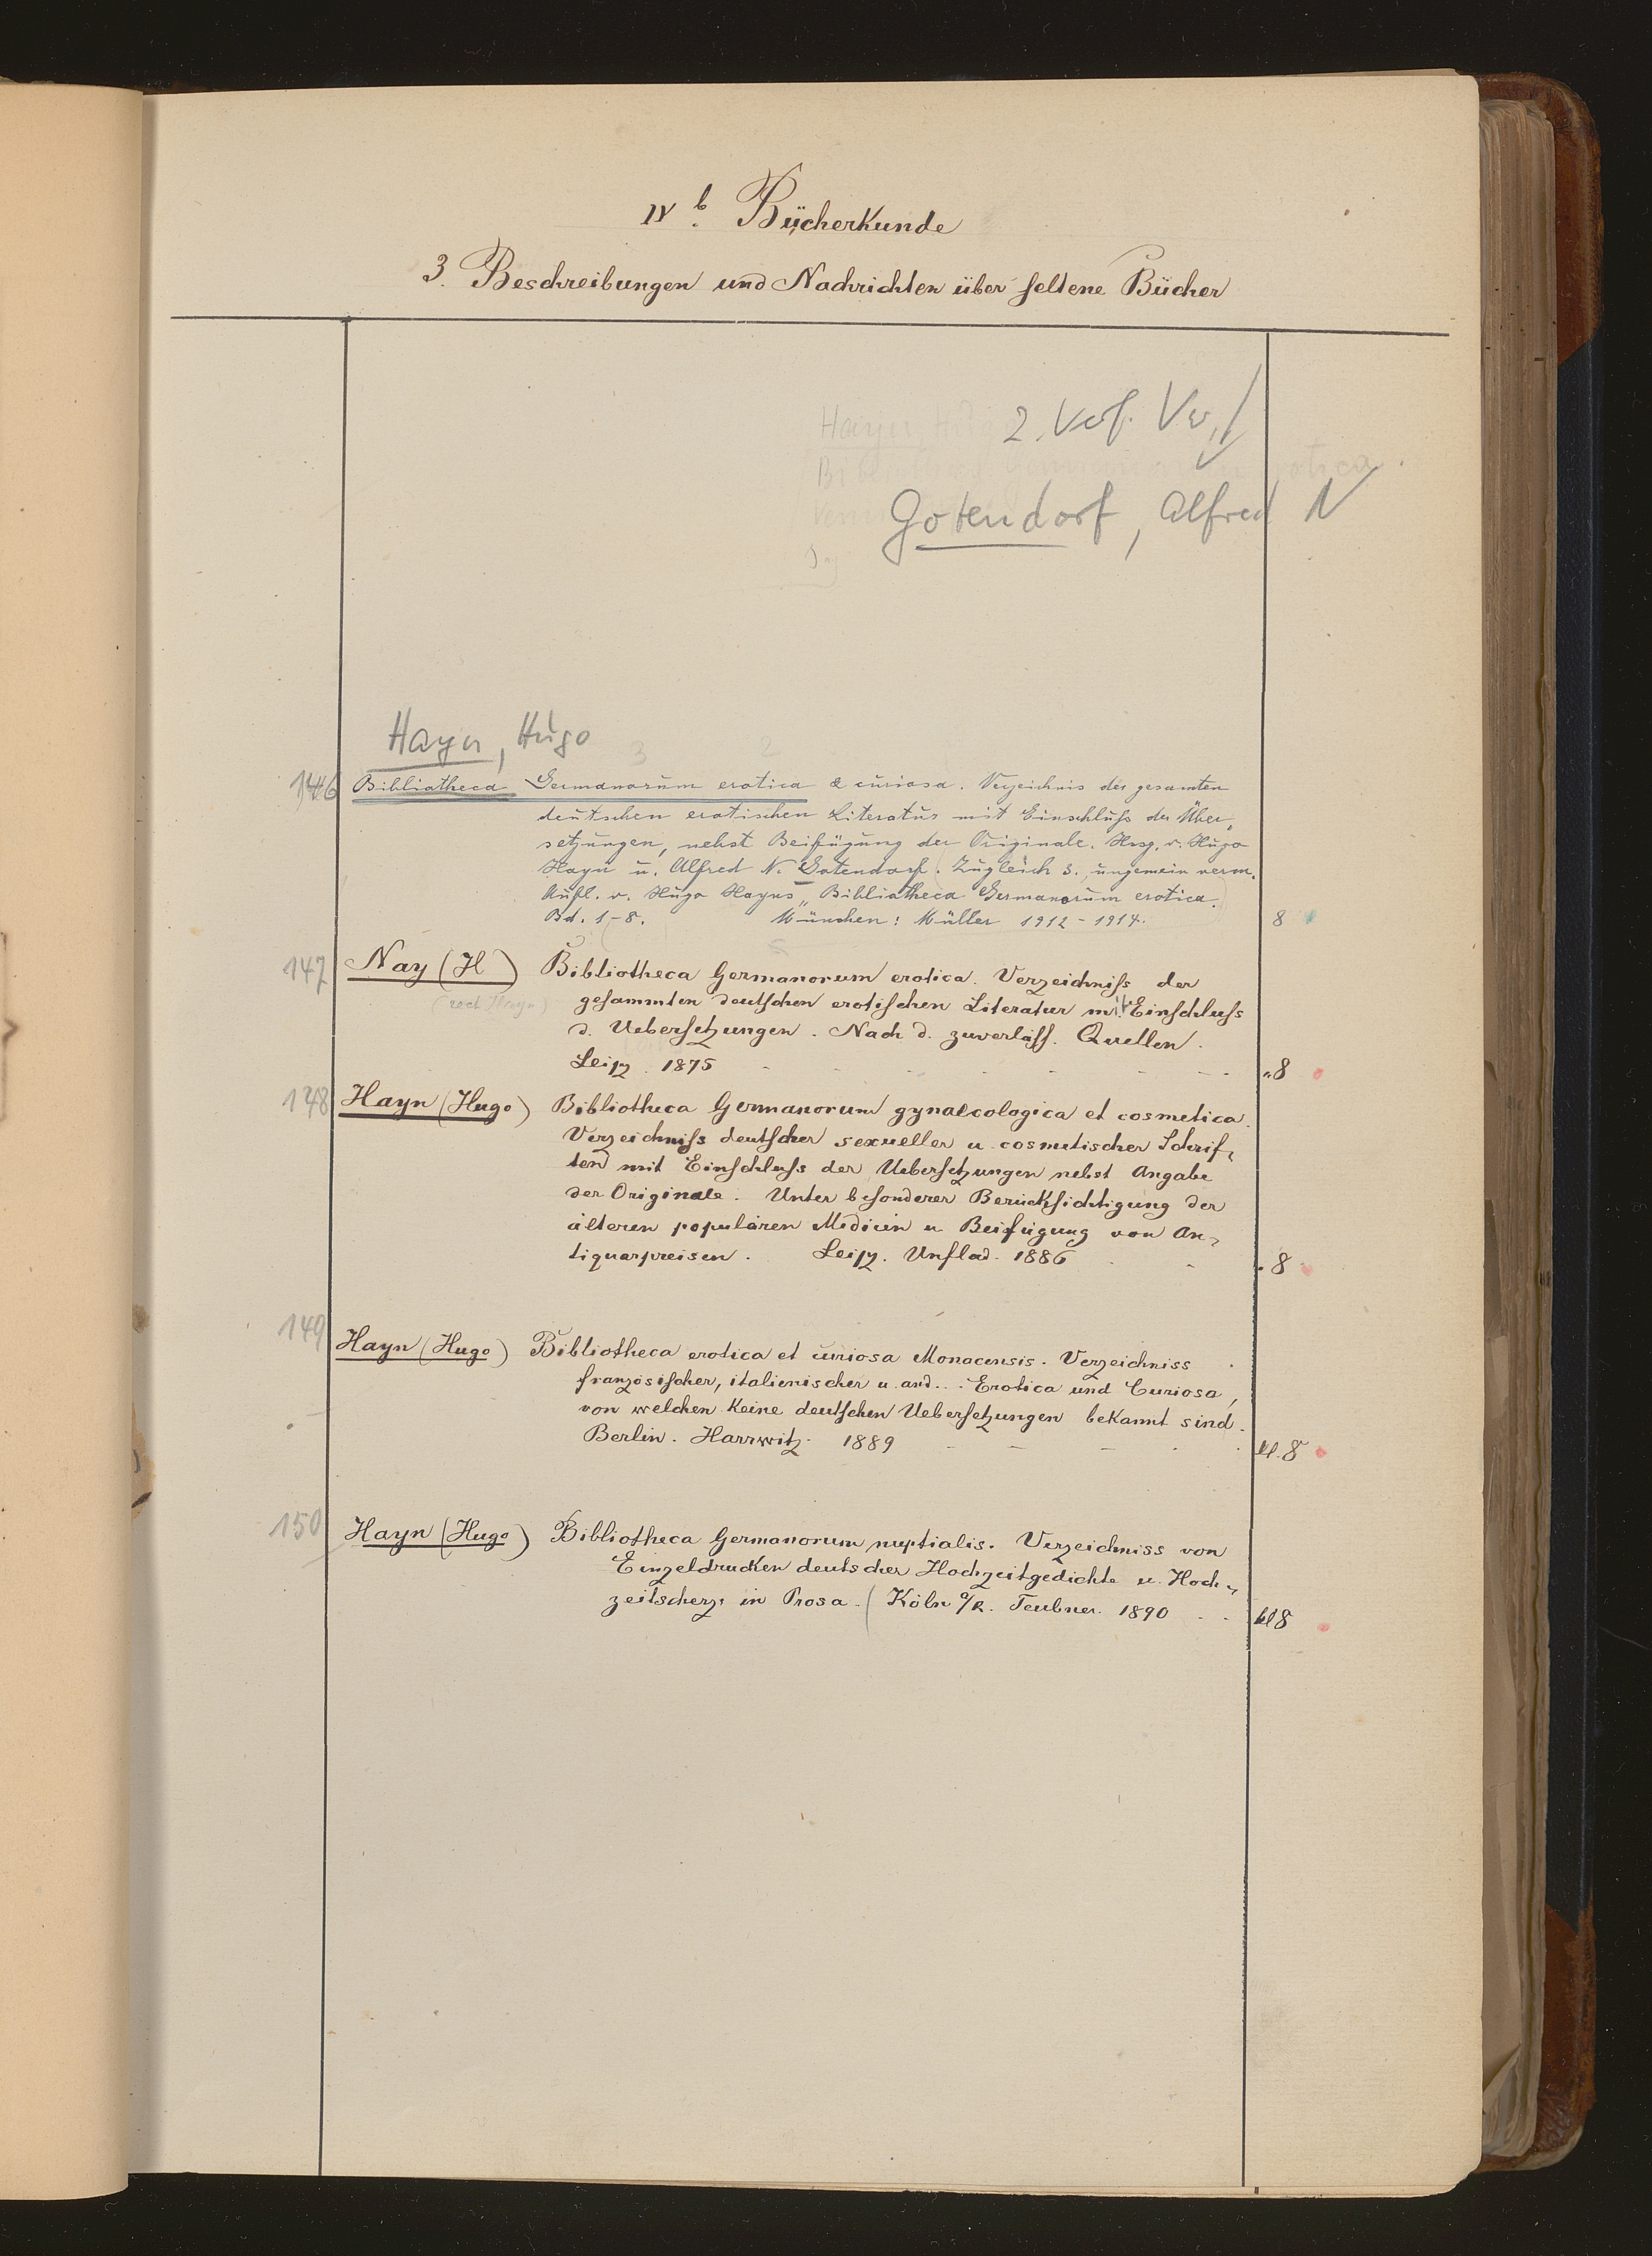 IV b. Bücherkunde
3. Beschreibungen und Nachrichten über seltene Bücher
2. Verf. Verf
Gotendorf, Alfred N
Hayn, Hugo
146 Bibliotheca Germanorum erotica & curiosa. Verzeichnis der gesamten
deutschen erotischen Literatur mit Einschluß der Über„
setzungen, nebst Beifügung der Originale. Hrsg. v. Hugo
Hayn u. Alfred N. Gotendorf. Zugleich 3., ungemein verm.
Aufl. v. Hugo Hayns „Bibliotheca Germanorum erotica.
Bd. 1-8. München: Müller 1912-1914. 8
147 Nay (H) Bibliotheca Germanorum erotica. Verzeichniss der
(rect. Hayn) gesammten deutschen erotischen Literatur mit Einschluss
d. Uebersetzungen. Nach d. zuverläss. Quellen.
Leipz. 1875 - - - - - - „8
148 Hayn (Hugo) Bibliotheca Germanorum gynaecologica et cosmetica.
Verzeichniss deutscher sexueller u. cosmetischer Schrif-
ten mit Einschluss der Uebersetzungen nebst Angabe
der Originale. Unter besonderer Berücksichtigung der
älteren populären Medicin u Beifügung von An-
tiquarpreisen. Leipz. Unflad. 1886 . - „8
149 Hayn (Hugo) Bibliotheca erotica et curiosa Monacensis. Verzeichniss
französischer, italienischer u. and... Erotica und Curiosa,
von welchen keine deutschen Uebersetzungen bekannt sind.
Berlin. Harrwitz. 1889 - - - - kl. 8
150 Hayn (Hugo) Bibliotheca Germanorum nuptialis. Verzeichniss von
Einzeldrucken deutscher Hochzeitgedichte u. Hoch-
zeitscherze in Prosa. (Köln a/R. Teubner. 1890 - - kl 8